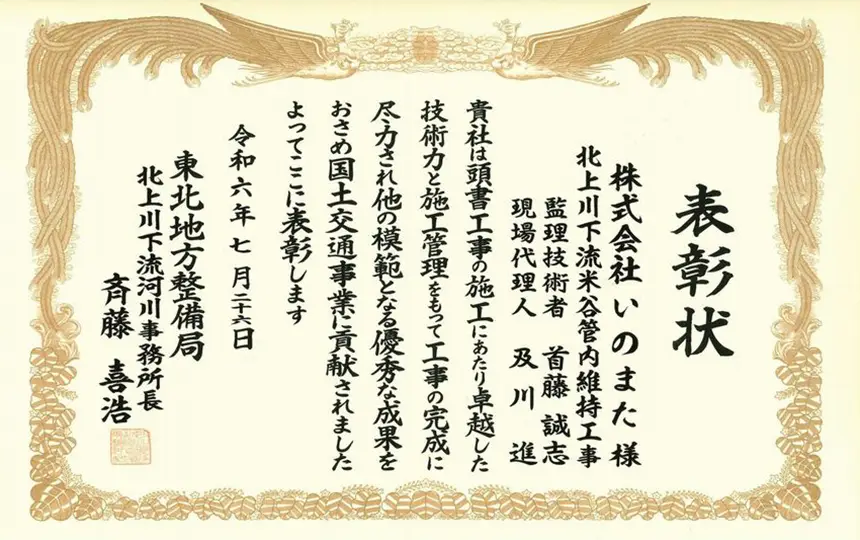 表彰状
株式会社いのまた様
北上川下流米谷管内維持工事
監理技術者 首藤誠志
現場代理人 及川進
貴社は頭書工事の施工にあたり卓越した
技術力と施工管理をもって工事の完成に
尽力され他の模範となる優秀な成果を
おさめ国土交通事業に貢献されました
よってここに表彰します
令和六年七月二十六日
東北地方整備局
北上川下流河川事務所長
斉藤喜浩